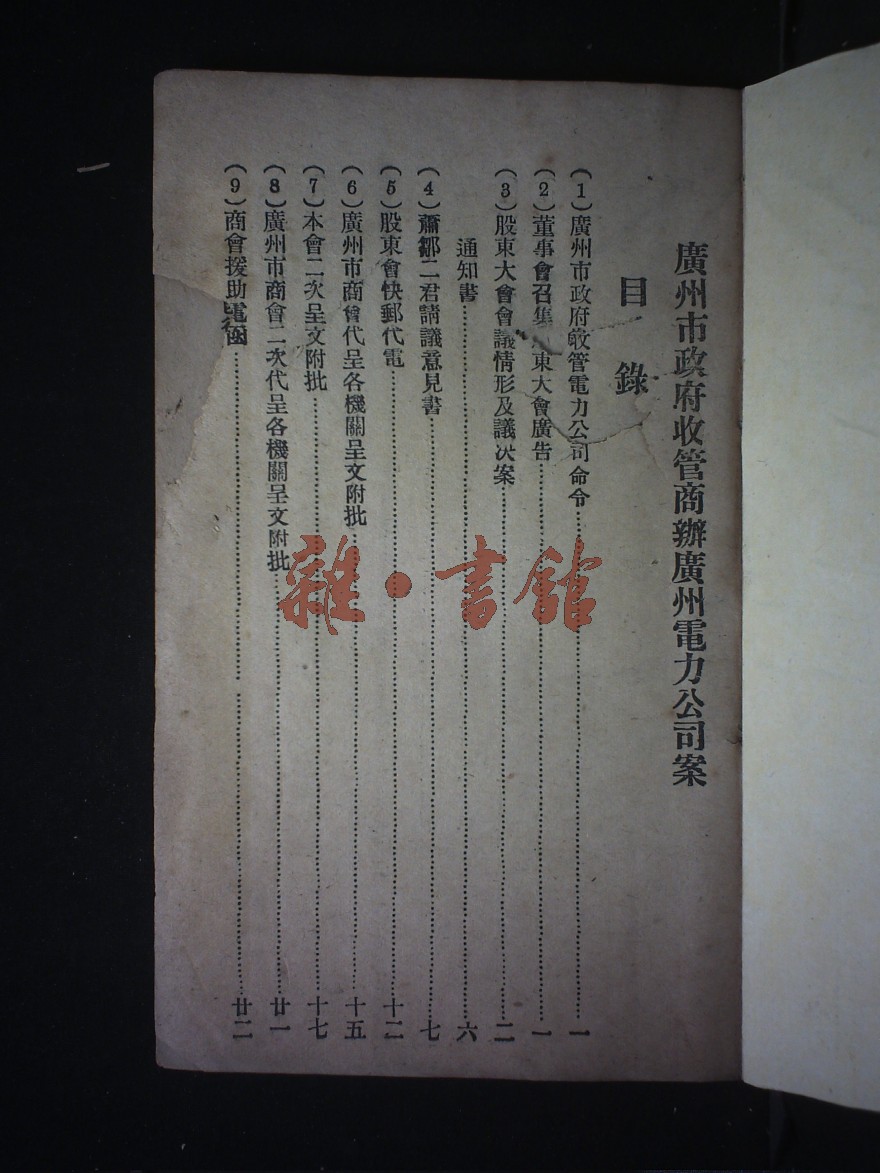 廣州市政府收管商辦廣州電力公司案
目錄
(1)廣州市政府收管電力公司命令……一
(2)董事會召集 東大會廣告……一
(3)股東大會會議情形及議決案……二
通知書……六
(4)蕭鄒二君請議意見書……七
(5)股東會快郵代電……十二
(6)廣州市商會代呈各機關呈文附批……十五
(7)本會二次呈文附批……十七
(8)廣州市商會二次代呈各機關呈文附批……廿一
(9)商會援助電函……廿二
雜·書館